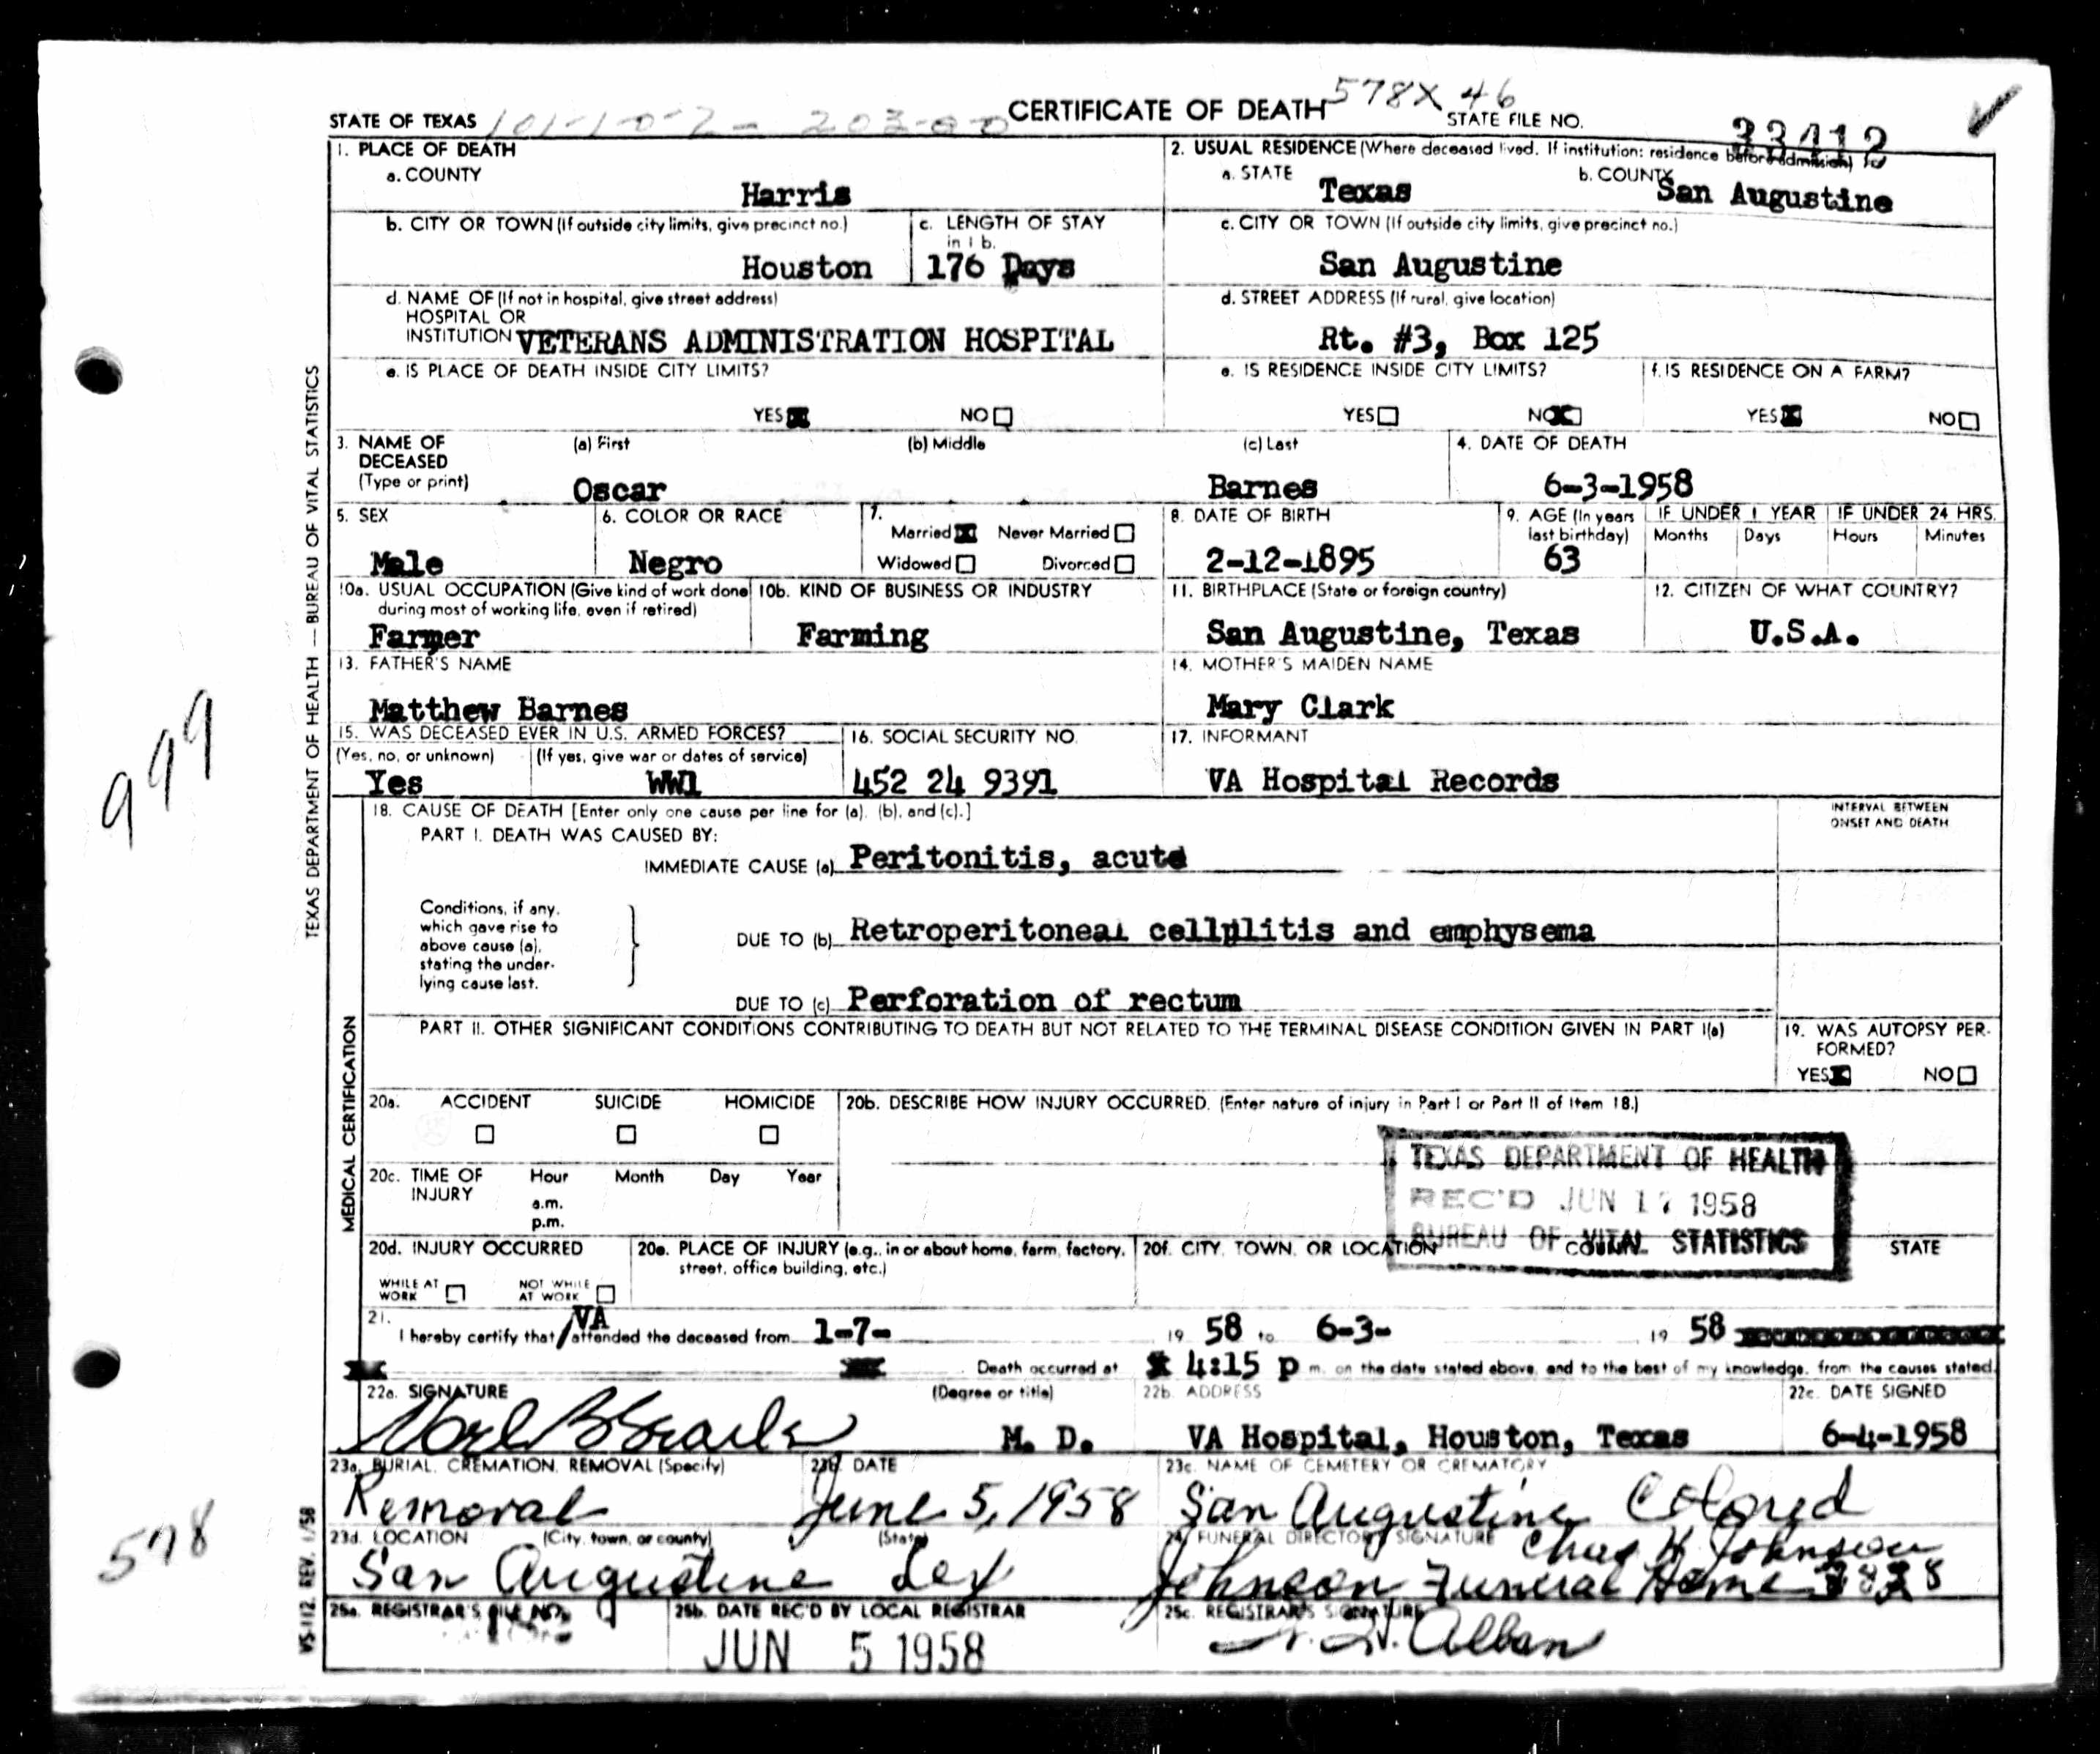 578X 46
STATE OF TEXAS CERTIFICATE OF DEATH STATE FILE NO. 33412
1. PLACE OF DEATH
a. COUNTY
Harris
2. USUAL RESIDENCE (Where deceased lived. If institution: residence before admission)
a. STATE b. COUNTY
Texas San Augustine
b. CITY OR TOWN (If outside city limits, give precinct no.)
Houston
c. LENGTH OF STAY
in 1 b.
176 Days
c. CITY OR TOWN (If outside city limits, give precinct no.)
San Augustine
d. NAME OF (If not in hospital, give street address)
HOSPITAL OR
INSTITUTION VETERANS ADMINISTRATION HOSPITAL
d. STREET ADDRESS (If rural, give location)
Rt. #3, Box 125
e. IS PLACE OF DEATH INSIDE CITY LIMITS?
YES NO
e. IS RESIDENCE INSIDE CITY LIMITS?
YES NO
f. IS RESIDENCE ON A FARM?
YES NO
3. NAME OF DECEASED
(Type or print)
(a) First (b) Middle (c) Last
Oscar Barnes
4. DATE OF DEATH
6-3-1958
5. SEX
Male
6. COLOR OR RACE
Negro
7.
Married Never Married
Widowed Divorced
8. DATE OF BIRTH
2-12-1895
9. AGE (In years
last birthday)
63
IF UNDER 1 YEAR IF UNDER 24 HRS.
Months Days Hours Minutes
10a. USUAL OCCUPATION (Give kind of work done
during most of working life, even if retired)
Farmer
10b. KIND OF BUSINESS OR INDUSTRY
Farming
11. BIRTHPLACE (State or foreign country)
San Augustine, Texas
12. CITIZEN OF WHAT COUNTRY?
U.S.A.
13. FATHER'S NAME
Matthew Barnes
14. MOTHER'S MAIDEN NAME
Mary Clark
15. WAS DECEASED EVER IN U.S. ARMED FORCES?
(Yes, no, or unknown) (If yes, give war or dates of service)
Yes WW1
16. SOCIAL SECURITY NO.
452 24 9391
17. INFORMANT
VA Hospital Records
18. CAUSE OF DEATH [Enter only one cause per line for (a), (b), and (c).]
INTERVAL BETWEEN
ONSET AND DEATH
PART I. DEATH WAS CAUSED BY:
IMMEDIATE CAUSE (a) Peritonitis, acute
Conditions, if any,
which gave rise to
above cause (a),
stating the under-
lying cause last.
DUE TO (b) Retroperitoneal cellulitis and emphysema
DUE TO (c) Perforation of rectum
PART II. OTHER SIGNIFICANT CONDITIONS CONTRIBUTING TO DEATH BUT NOT RELATED TO THE TERMINAL DISEASE CONDITION GIVEN IN PART I(a)
19. WAS AUTOPSY PER-
FORMED?
YES NO
20a. ACCIDENT SUICIDE HOMICIDE
20b. DESCRIBE HOW INJURY OCCURRED. (Enter nature of injury in Part I or Part II of Item 18.)
20c. TIME OF
INJURY
Hour Month Day Year
a.m.
p.m.
TEXAS DEPARTMENT OF HEALTH
REC'D JUN 17 1958
BUREAU OF VITAL STATISTICS
20d. INJURY OCCURRED
WHILE AT
WORK
NOT WHILE
AT WORK
20e. PLACE OF INJURY (e.g., in or about home, farm, factory,
street, office building, etc.)
20f. CITY, TOWN, OR LOCATION COUNTY STATE
21.
VA
I hereby certify that attended the deceased from 1-7- 19 58 to 6-3- 19 58
Death occurred at 4:15 p m. on the date stated above, and to the best of my knowledge, from the causes stated.
22a. SIGNATURE (Degree or title)
M. D.
22b. ADDRESS
VA Hospital, Houston, Texas
22c. DATE SIGNED
6-4-1958
23a. BURIAL, CREMATION, REMOVAL (Specify)
Removal
23b. DATE
June 5, 1958
23c. NAME OF CEMETERY OR CREMATORY
San Augustine Colored
23d. LOCATION (City, town, or county) (State)
San Augustine Tex
24. FUNERAL DIRECTOR'S SIGNATURE
Chas H. Johnson
Johnson Funeral Home
25a. REGISTRAR'S FILE NO.
25b. DATE REC'D BY LOCAL REGISTRAR
JUN 5 1958
25c. REGISTRAR'S SIGNATURE
Alban
TEXAS DEPARTMENT OF HEALTH — BUREAU OF VITAL STATISTICS
MEDICAL CERTIFICATION
VS-112 REV. 1/58
999
578